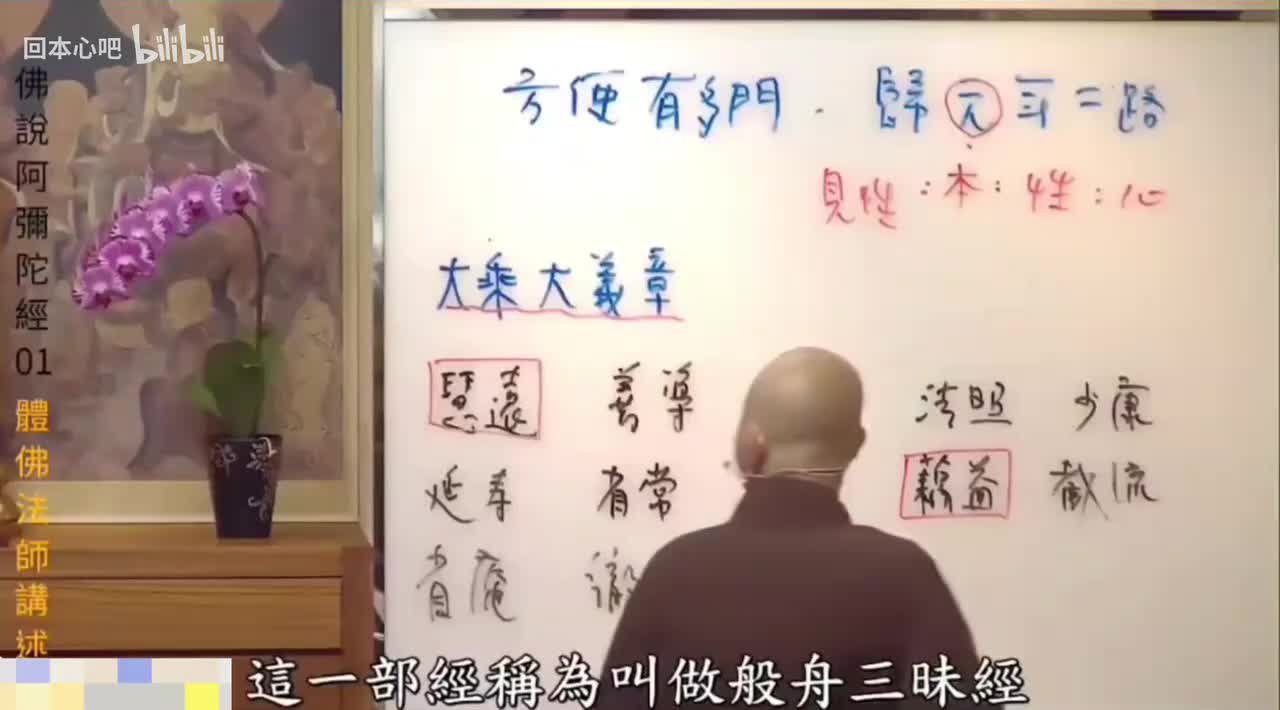 回本心吧 bilibili
佛說阿彌陀經01 體佛法師講述
方便有多門．歸元無二路
見性：本：性：心
大乘大義章
慧遠 善導 清照 少康
延壽 有常 蕅益 截流
省庵 徹
這一部經稱為叫做般舟三昧經